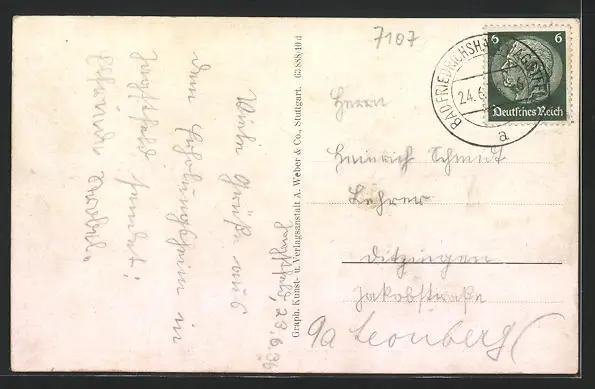 7107
BAD FRIEDRICHSHALL
24. 6.
a
6 6
Deutsches Reich
Jagstfeld, 23.6.36
Viele Grüße aus
dem Erholungsheim in
Jagstfeld sendet
Graph. Kunst- u. Verlagsanstalt A. Weber & Co., Stuttgart. 63888/40 d
Herrn
Heinrich Schmidt
Lehrer
Ditzingen
Jakobstraße
9a Leonberg